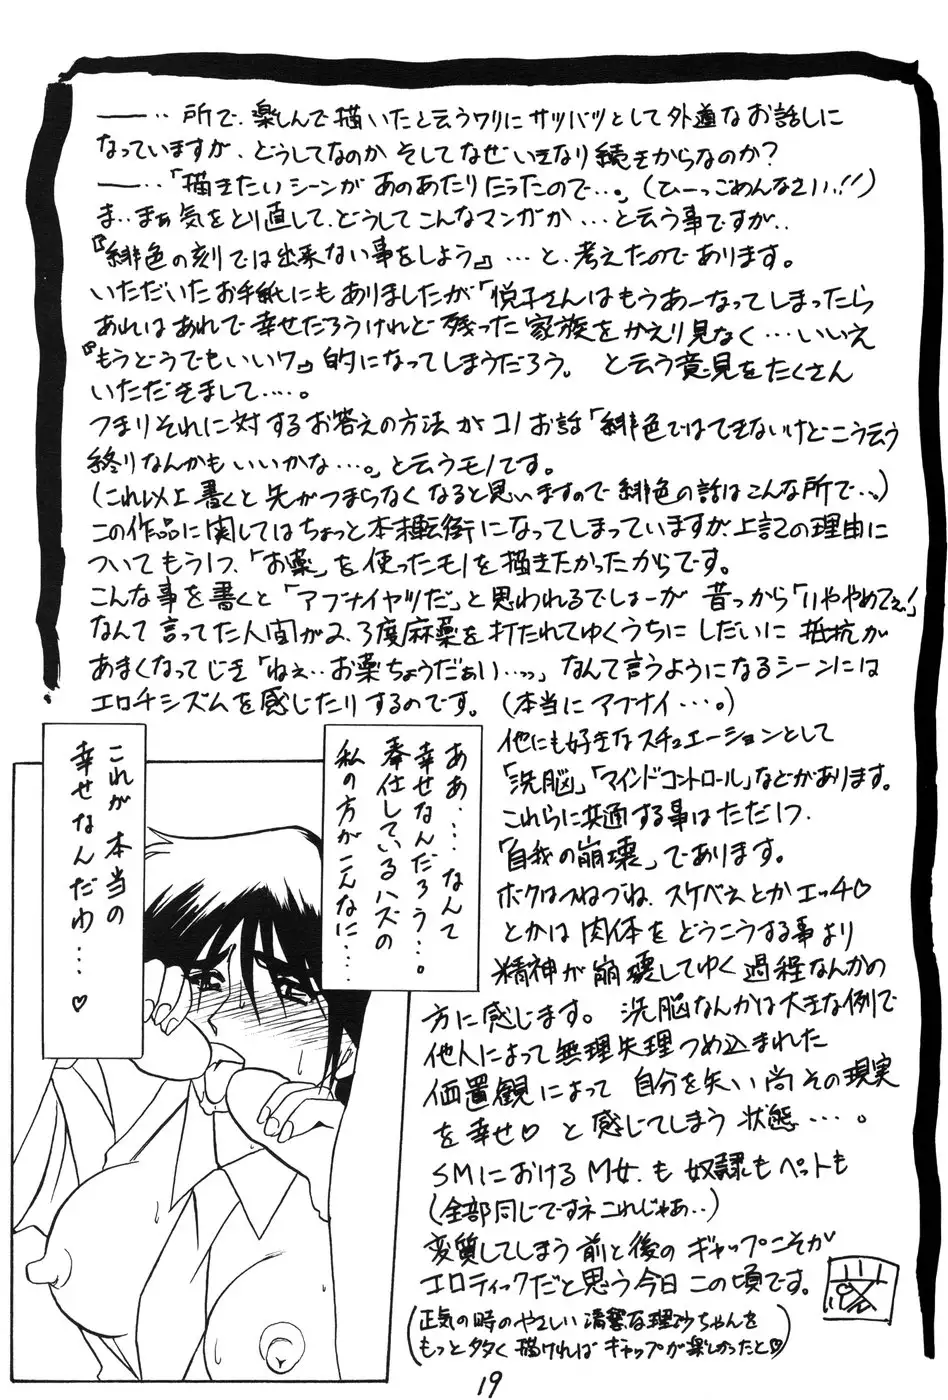 ――‥ 所で、楽しんで描いたと云うワリにサツバツとして外道なお話しに
なっていますが、どうしてなのか そしてなぜ いきなり続きからなのか？
――‥「描きたいシーンが あのあたりだったので…。」(ひーっごめんなさい!!)
ま‥まぁ気をとり直して、どうしてこんなマンガか…と云う事ですが‥
『緋色の刻では出来ない事をしよう』…と、考えたのであります。
いただいたお手紙にもありましたが「悦子さんはもうあーなってしまったら
あれはあれで幸せだろうけれど 残った家族をかえり見なく…いいえ
『もうどうでもいいワ』的になってしまうだろう。 と云う意見をたくさん
いただきまして…‥。
つまりそれに対するお答えの方法がコノお話「緋色ではできないけどこう云う
終りなんかもいいかな…‥。」と云うモノです。
(これ以上書くと先がつまらなくなると思いますので緋色の話はこんな所で‥。)
この作品に関してはちょっと本末転倒になってしまっていますが、上記の理由に
ついてもう1つ、「お薬」を使ったモノを描きたかったからです。
こんな事を書くと「アブナイヤツだ」と思われるでしょーが 昔っから「いややめてぇ!」
なんて言ってた人間が2、3度麻薬を打たれてゆくうちにしだいに抵抗が
あまくなってじき「ねぇ‥お薬ちょうだぁい…っっ」なんて言うようになるシーンには
エロチシズムを感じたりするのです。(本当にアブナイ…‥。)
他にも好きなスチュエーションとして
「洗脳」「マインドコントロール」などがあります。
これらに共通する事はただ1つ
「自我の崩壊」であります。
ボクはつねづね、スケベぇとかエッチ♡
とかは肉体をどうこうする事より
精神が崩壊してゆく過程なんかの
方に感じます。 洗脳なんかは大きな例で
他人によって無理矢理つめ込まれた
価値観によって 自分を失い尚その現実
を幸せ♡ と感じてしまう状態…‥。
SMにおけるM女も奴隷もペットも
(全部同じですネこれじゃあ‥)
変質してしまう前と後のギャップこそが
エロティックだと思う今日この頃です。
(正気の時のやさしい清楚な理沙ちゃんを
もっと多く描ければギャップが楽しかったと♡)
ああ…‥なんて
幸せなんだろう…。
奉仕しているハズの
私の方がこんなに…
これが本当の
幸せなんだゎ…♡
19